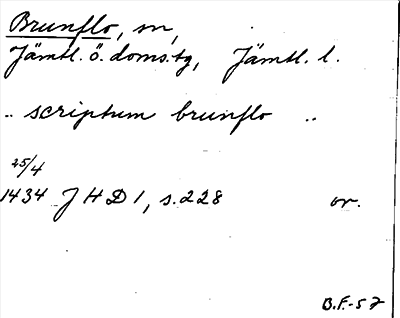 Brunflo, sn,
Jämtl. ö. doms:tg, Jämtl. l.
.. scriptum brunflo ..
25/4
1434 JHD 1, s. 228 or.
B.F.-52